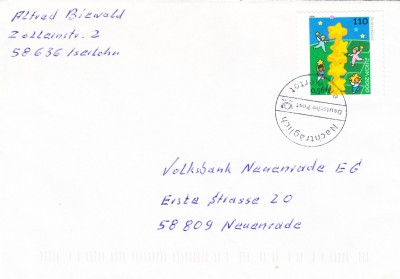 Alfred Biewald
Zollernstr. 2
58636 Iserlohn
110
EUROPA 2000
Deutsche Post
Nachträglich
entwertet
Volksbank Neuenrade EG
Erste Strasse 20
58809 Neuenrade